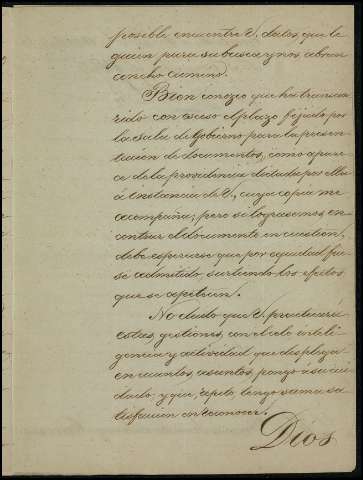 posible encuentre V. datos, que le
guien para su busca y nos abran
ancho camino.
Bien conozco que ha transcur
rido con exceso el plazo fijado por
la Sala de Gobierno para la presen
tacion de documentos, como apare
ce de la providencia dictada por ella
á instancia de V., cuya copia me
acompaña; pero si lograsemos en
contrar el documento en cuestion,
debe esperarse que por equidad fue
se admitido, surtiendo los efectos
que se apetecen.
No dudo que V. practicará
estas gestiones, con el celo inteli
gencia y actividad que desplega
en cuantos asuntos, pongo á su cui
dado: y que, repito, tengo suma sa
tisfaccion en reconocer.
Dios